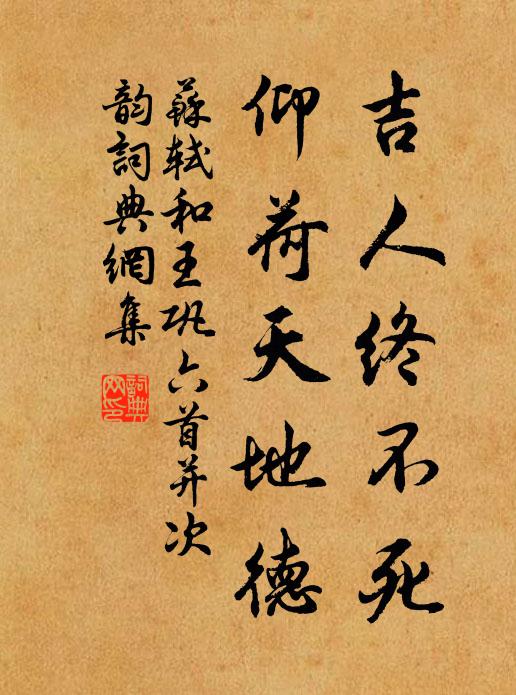 吉人終不死
仰荷天地德
蘇軾和王巩六首并次
韵詞典網集
詞典网印